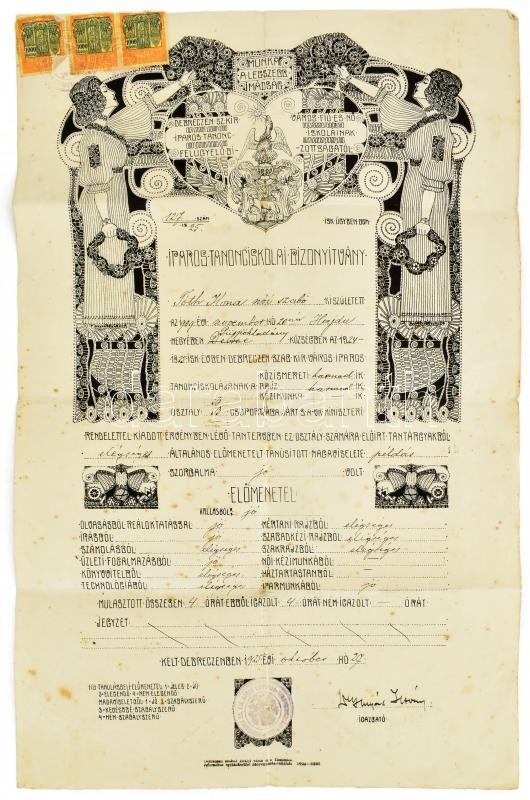 1000 1000 1000
MUNKA
A LEGSZEBB
IMÁDSÁG
DEBRECZEN SZ. KIR. VÁROS FIÚ ÉS NŐ
IPAROS TANONC ISKOLÁINAK
FELÜGYELŐ BIZOTTSÁGÁTÓL
127 SZÁM
1925. ISK. ÜGYBEN
IPAROS TANONCISKOLAI BIZONYÍTVÁNY
Tóth Ilona női szabó KI SZÜLETETT
AZ 1909 ÉVI november HÓ 20án Hajdu
MEGYÉBEN Püspökladány KÖZSÉGBEN AZ 1924—
1925 ISK. ÉVBEN DEBRECZEN SZAB. KIR. VÁROS IPAROS
KÖZISMERETI harmad IK
TANONCISKOLÁJÁNAK A RAJZ harmad IK
KÉZIMUNKA IK
OSZTÁLY B CSOPORTJÁBA JÁRT S A MINISZTERI
RENDELETTEL KIADOTT ÉRVÉNYBEN LÉVŐ TANTERVBEN EZ OSZTÁLY SZÁMÁRA ELŐÍRT TANTÁRGYAKBÓL
elégséges ÁLTALÁNOS ELŐMENETELT TANÚSÍTOTT MAGAVISELETE példás
SZORGALMA jó VOLT.
ELŐMENETEL
VALLÁSBÓL: jó
OLVASÁSBÓL REÁLOKTATÁSSAL jó MÉRTANI RAJZBÓL elégséges
ÍRÁSBÓL jó SZABADKÉZI RAJZBÓL elégséges
SZÁMOLÁSBÓL elégséges SZAKRAJZBÓL elégséges
ÜZLETI FOGALMAZÁSBÓL jó NŐI KÉZIMUNKÁBÓL —
KÖNYVVITELBŐL elégséges HÁZTARTÁSTANBÓL —
TECHNOLÓGIÁBÓL elégséges IPARMUNKÁBÓL jó
MULASZTOTT ÖSSZESEN: 4 ÓRÁT EBBŐL IGAZOLT 4 ÓRÁT NEM IGAZOLT — ÓRÁT
JEGYZET:
KELT DEBRECZENBEN 1925 ÉVI október HÓ 27
TANULÁSBELI ELŐMENETEL 1 JELES 2 JÓ
3 ELEGENDŐ 4 NEM ELEGENDŐ
MAGAVISELETBŐL 1 JÓ 2 SZABÁLYSZERŰ
3 KEVÉSBBÉ SZABÁLYSZERŰ
4 NEM SZABÁLYSZERŰ
István
IGAZGATÓ
darabanth